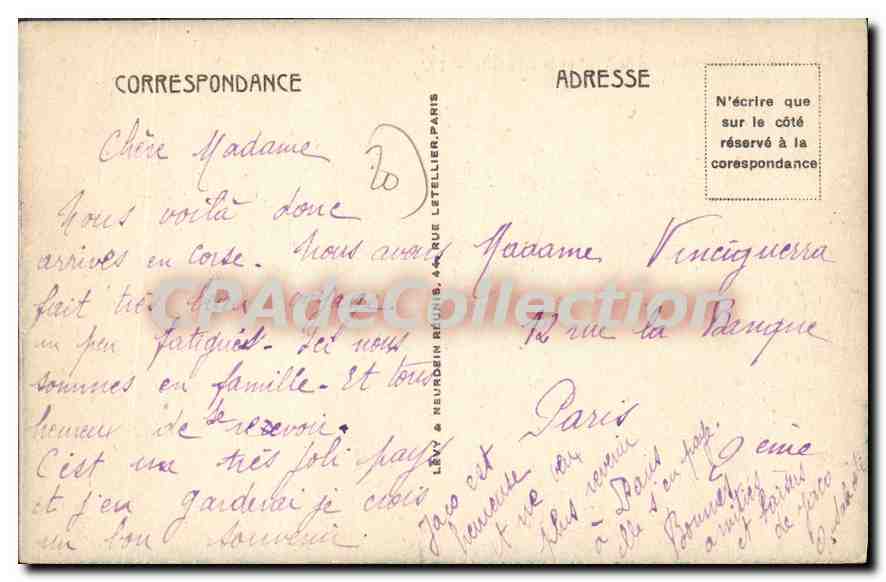 CORRESPONDANCE
ADRESSE
N'écrire que
sur le côté
réservé à la
corespondance
LÉVY & NEURDEIN RÉUNIS, 44, RUE LETELLIER, PARIS
20
Chère Madame
Nous voilà donc
arrivés en Corse. Nous avons
fait très bon voyage
un peu fatigués. Ici nous
sommes en famille. Et tous
heureux de se revoir.
C'est un très joli pays
et j'en garderai je crois
un bon souvenir.
Madame Vinciguerra
12 rue la Banque
Paris
2 eme
Jaco est
heureuse
et ne veu
plus revenir
à Paris
elle s'en
Bonnes
amitiés
et baisers
de Jaco
CPAdeCollection